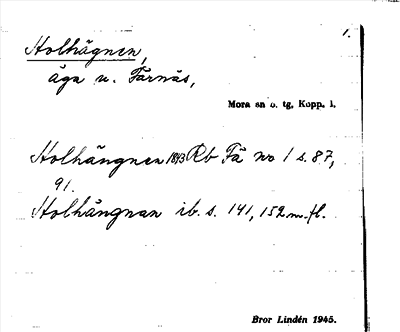 1.
Holhägnen,
äga u. Färnäs,
Mora sn o. tg, Kopp. l.
Holhängnen 1843 Rb Fä no 1 s. 87,
91.
Holhängnan ib. s. 141, 152 m. fl.
Bror Lindén 1945.